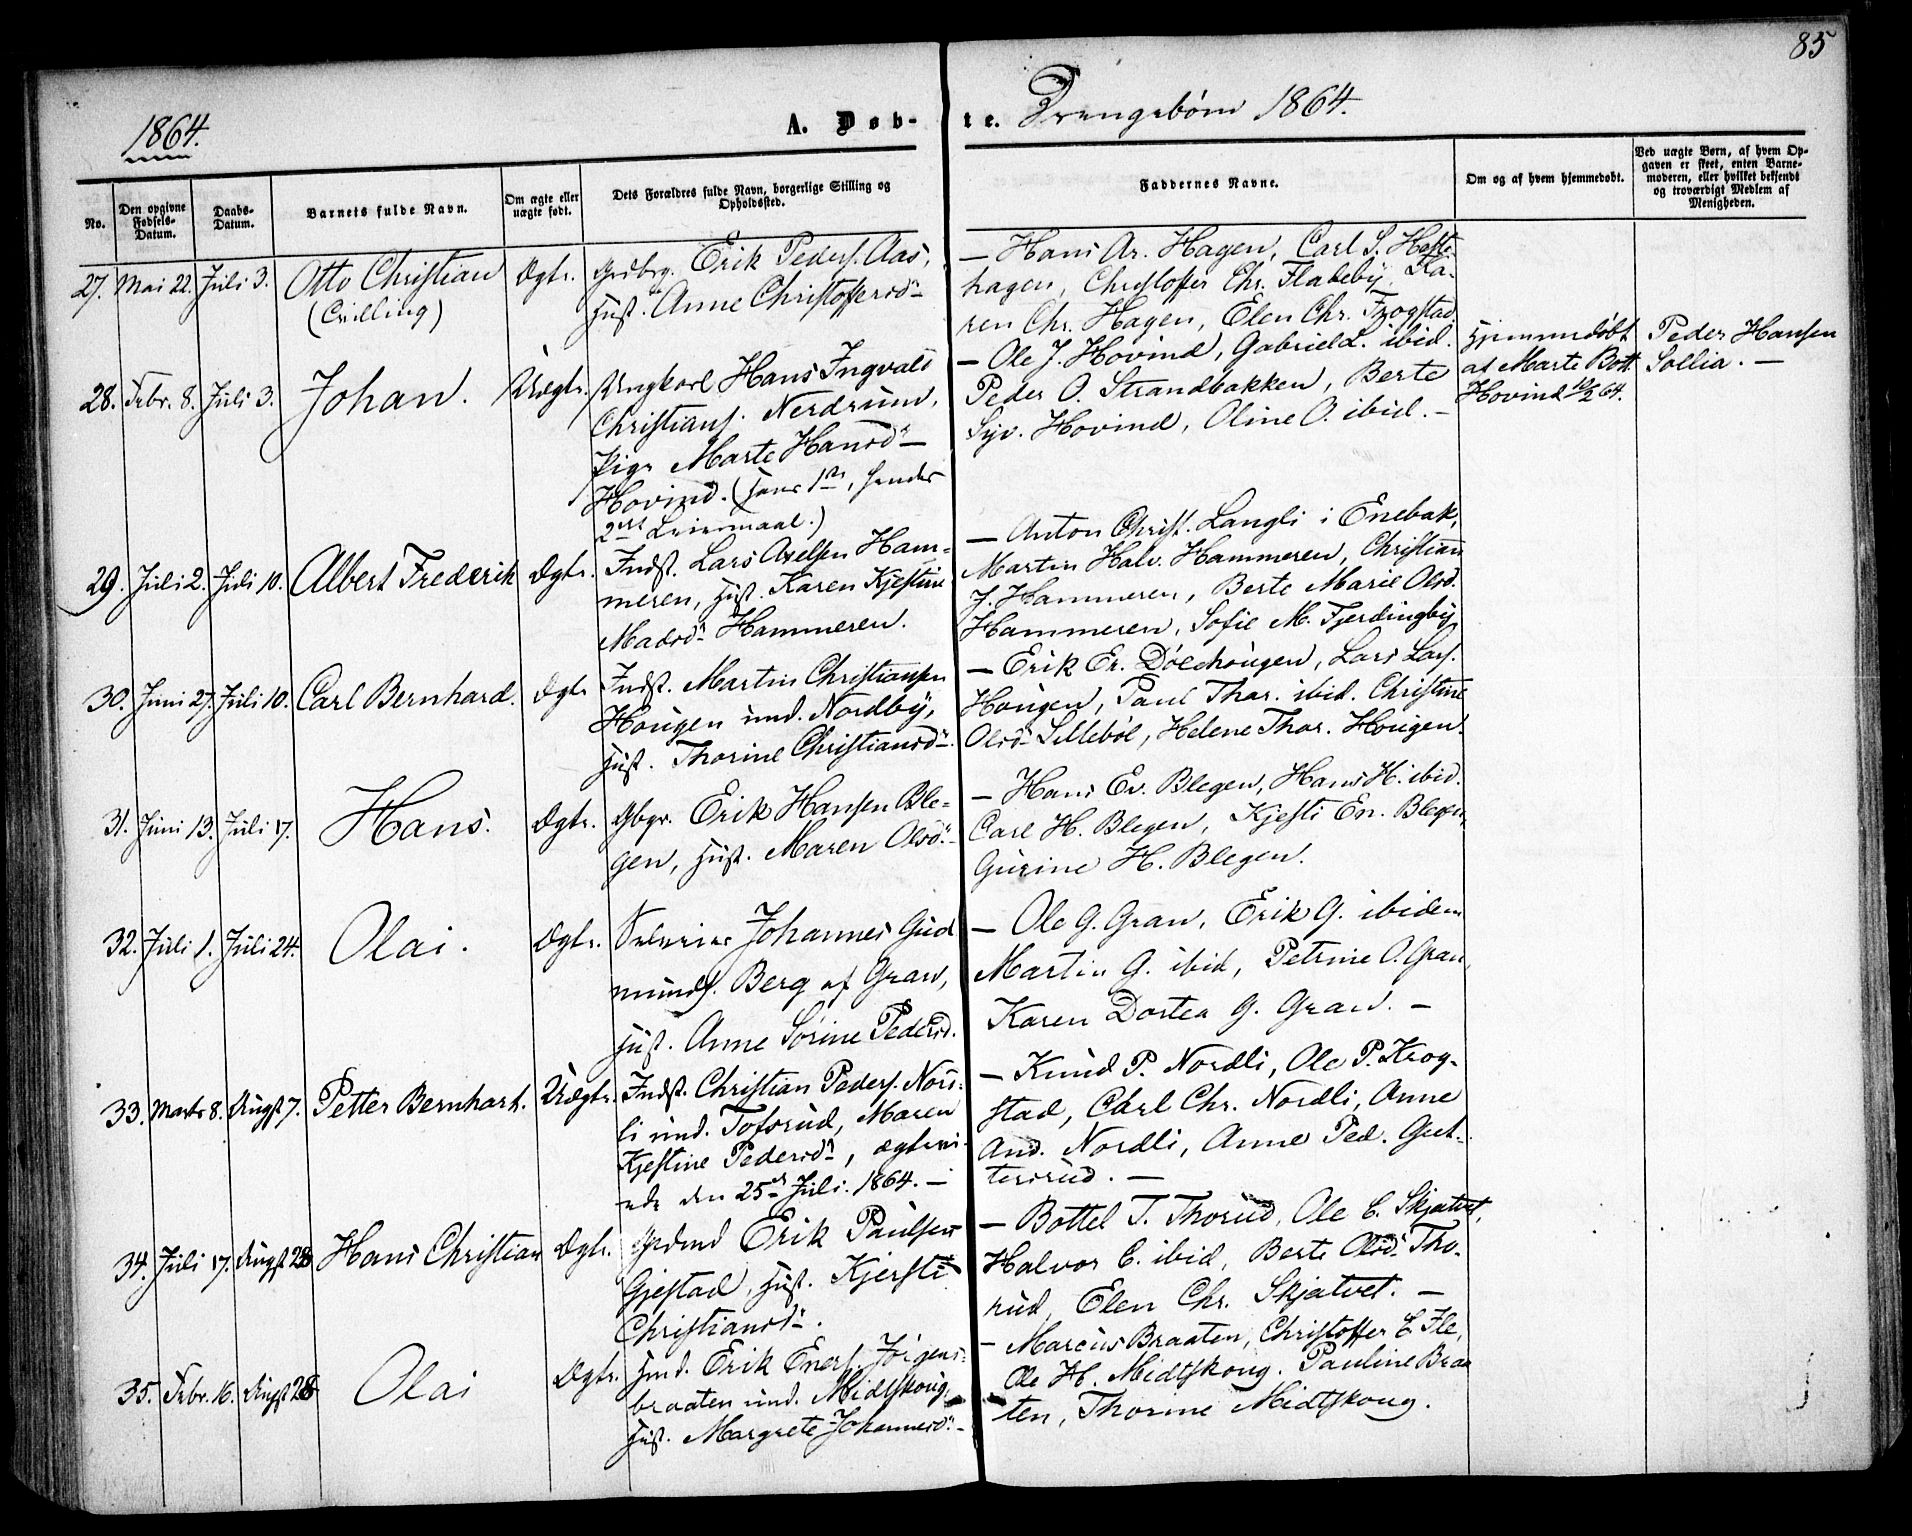 85
1864.
A. Døb-
te. Drengebørn 1864.
No.
Den opgivne Fødsels-Datum.
Daabs-Datum.
Barnets fulde Navn.
Om ægte eller uægte født.
Dets Forældres fulde Navn, borgerlige Stilling og Opholdssted.
Faddernes Navne.
Om og af hvem hjemmedøbt.
Ved uægte Børn, af hvem Opgaven er skeet, enten Barnemoderen, eller hvilket bekjendt og troværdigt Medlem af Menigheden.
27. Mai 22. Juli 3. Otto Christian
(Tvilling)
Ægte.
Grdbrg. Erik Peders. Aas,
Hust. Anne Christoffersd.
— Hans Ar. Hagen, Carl S.
hagen, Christoffer Chr. Flateby, Ka-
ren Chr. Hagen, Elen Chr.
28. Febr. 8. Juli 3. Johan.
Uægte.
Ungkarl Hans Ingvald
Christians. Nerdrum,
Pige Marte Hansd.
Hovind. (hans 1ste, hendes
2det Leiermaal.)
— Ole J. Hovind, Gabriel L. ibid.
Peder O. Strandbakken, Berte
Syv. Hovind, Oline O. ibid. —
Hjemmedøbt
af Marte Bott.
Hovind 10/2 64.
Peder Hansen
Sollia. —
29. Juli 2. Juli 10. Albert Frederik
Ægte.
Indst. Lars Axelsen Ham-
meren, Hust. Karen Kjestine
Madsd. Hammeren.
— Anton Christ. Langli i Enebak,
Martin Halv. Hammeren, Christian
J. Hammeren, Berte Marie Olsd.
Hammeren, Sofie M. Fjerdingby.
30. Juni 27. Juli 10. Carl Bernhard.
Ægte
Indst. Martin Christiansen
Hougen und. Nordby,
Hust. Thorine Christiansd.
— Erik Er. Dølehougen, Lars Lars.
Hougen, Paul Thor. ibid. Christine
Olsd. Sillebøl, Helene Thor. Hougen.
31. Juni 13. Juli 17. Hans.
Ægte.
Gbgr. Erik Hansen Ble-
gen, Hust. Maren Olsd. —
— Hans Ev. Blegen, Hans H. ibid.
Carl H. Blegen, Kjesti En. Blegen,
Gurine H. Blegen.
32. Juli 1. Juli 24. Olai.
Ægte.
Johannes Gud
munds. Berg af Gran,
Hust. Anne Sørine Pedersd.
— Ole G. Gran, Erik G. ibidem
Martin G. ibid, Petrine O. Gran,
Karen Dortea G. Gran. —
33. Marts 8. August 7. Petter Bernhart.
Uægte.
Indst. Christian Peders. Nord-
li und. Tofsrud, Maren
Kjestine Pedersd., ægtevi-
ede den 25de Juli. 1864. —
— Knud P. Nordli, Ole P. Krog-
stad, Carl Chr. Nordli, Anne
And. Nordli, Anne Ped. Gut-
tersrud. —
34. Juli 17. August 28 Hans Christian
Ægte.
Grdmd Erik Paulsen
Gjestad, Hust. Kjersti
Christiansd.
— Bottel T. Thorud, Ole C. Skjatvet,
Halvor C. ibid, Berte Olsd. Tho-
rud, Elen Chr. Skjatvet. —
35. Febr. 16. August 28 Olai
Ægte.
Hmd. Erik Eners. Jørgens-
braaten und. Midtskoug,
Hust. Margrete Johannesd. —
— Marcus Braaten, Christoffer C. Fle,
Ole H. Midtskoug. Pauline Braa
ten, Thorine Midtskoug.